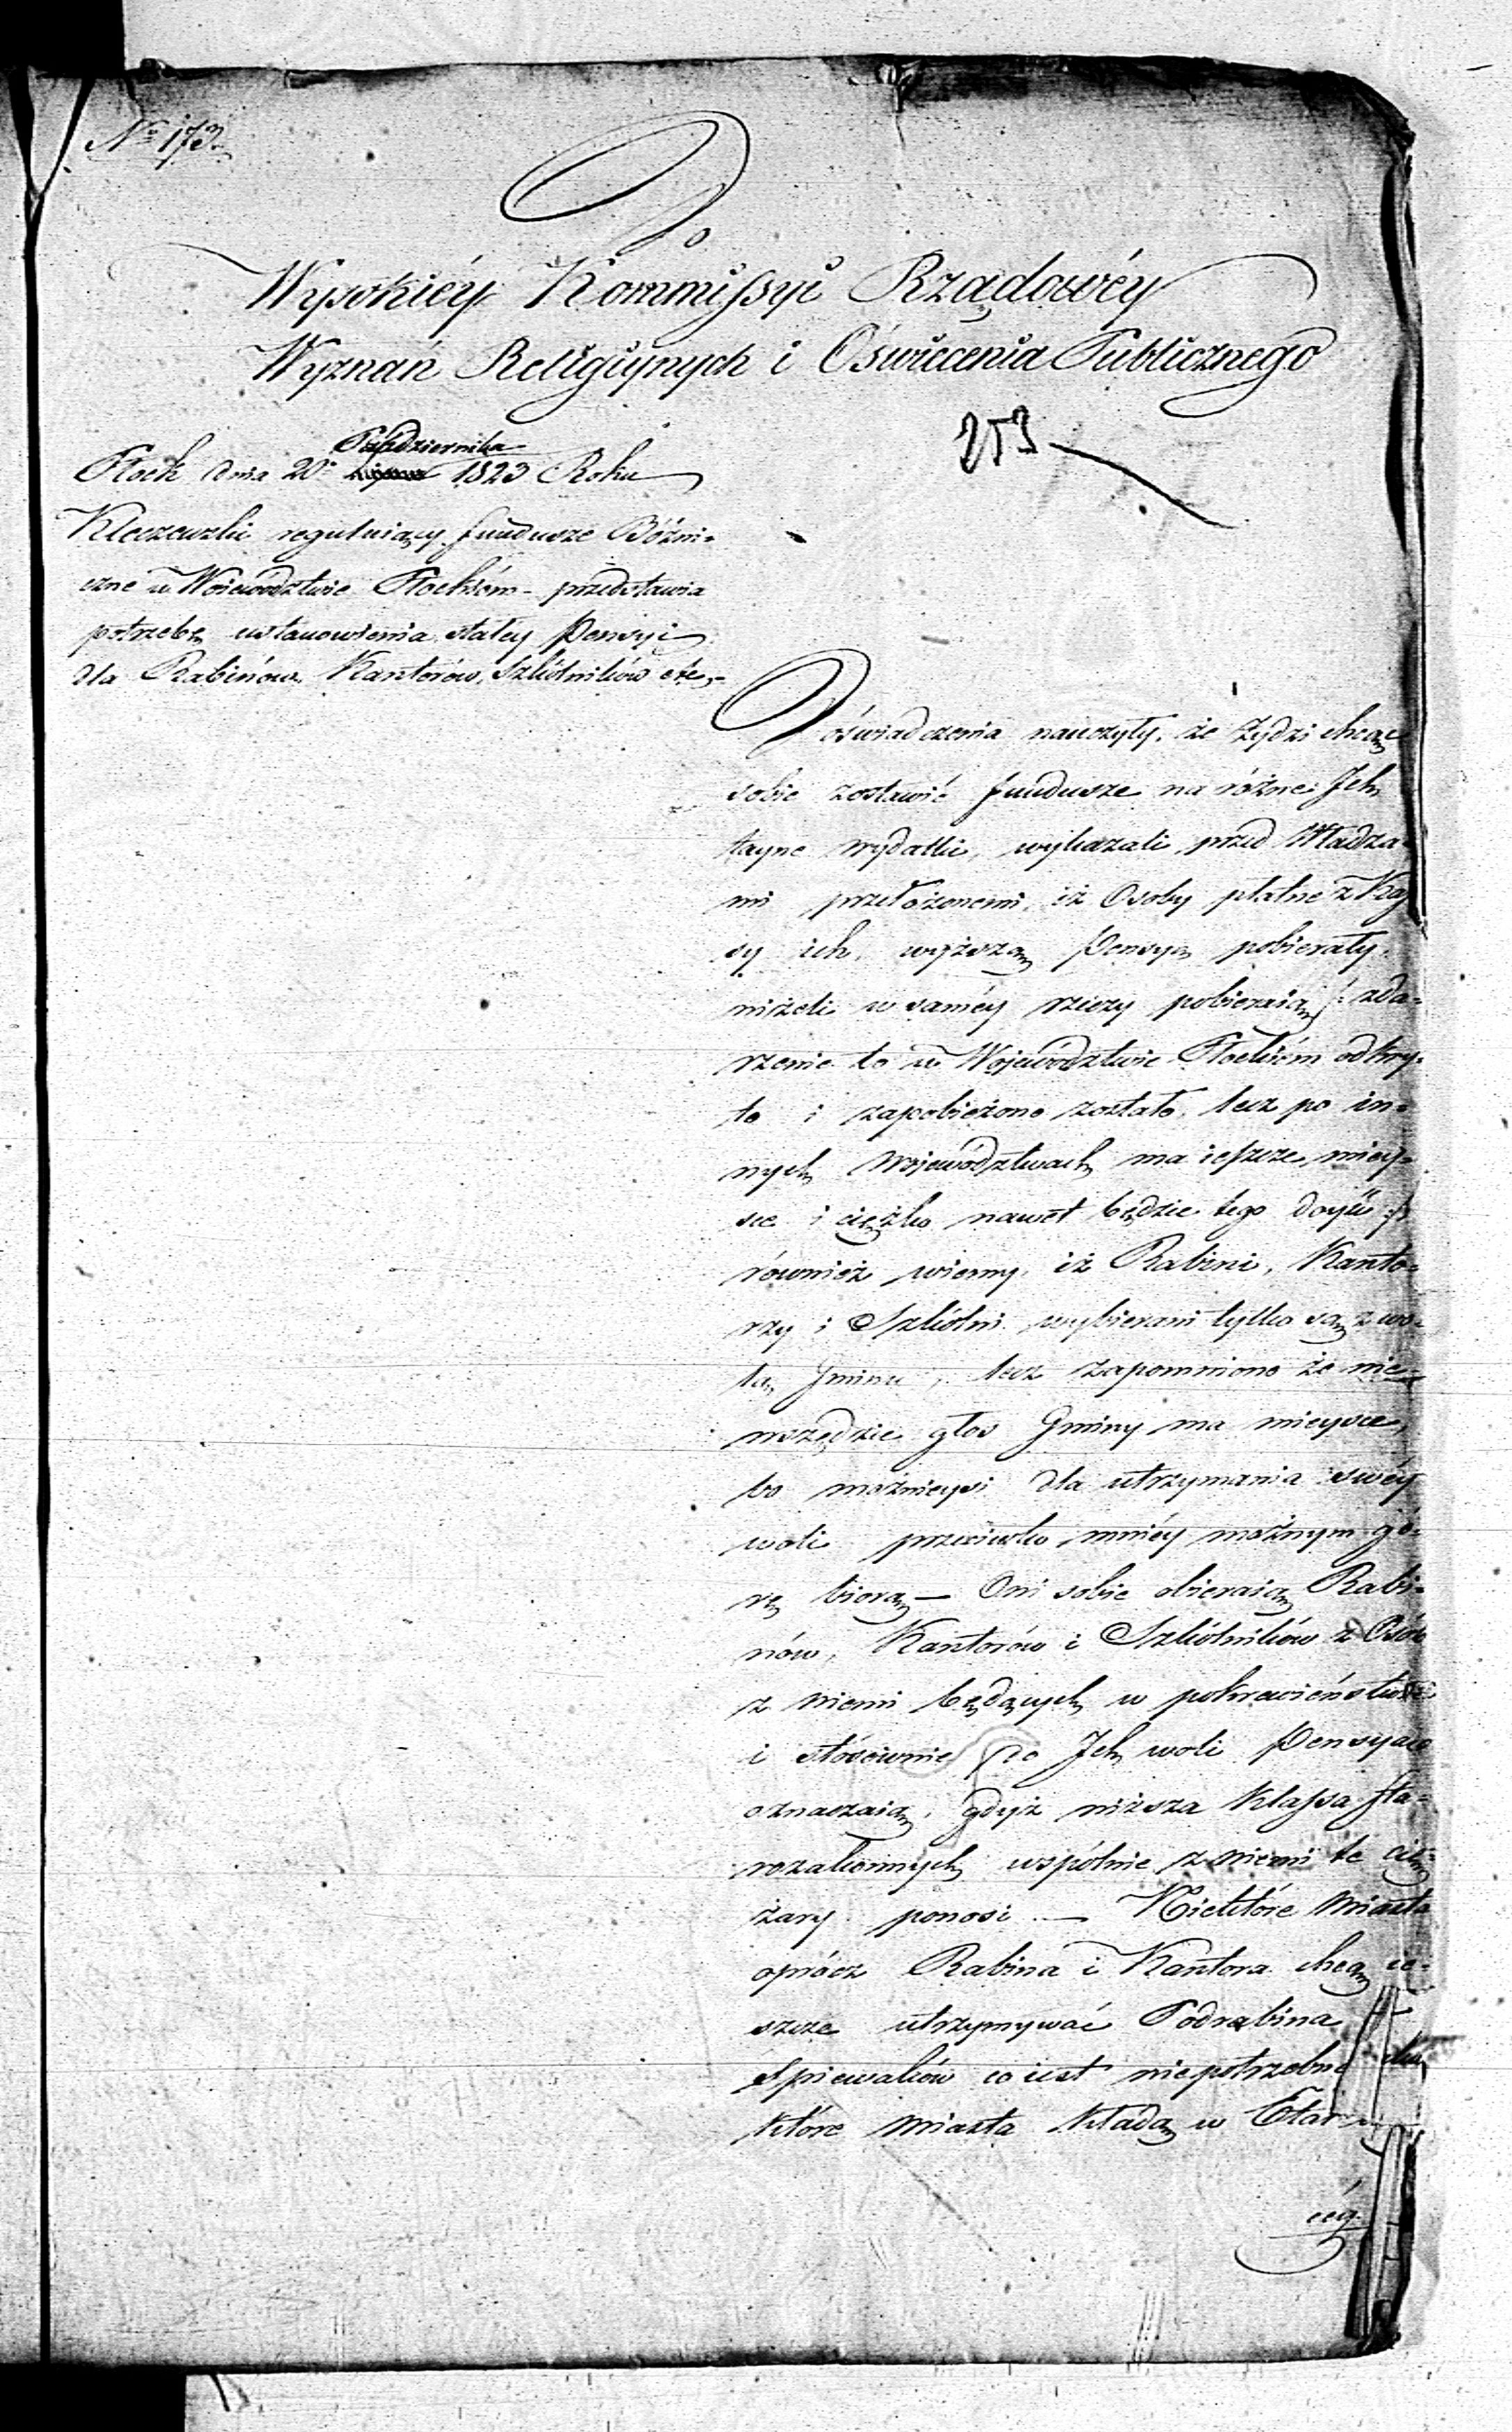 No 173.
Do
Wysokiéy Kommissyi Rządowéy
Wyznań Religiynych i Oświecenia Publicznego
253
Października
Płock dnia 20o 1823 Roku
Kleczewski reguluiący fundusze Bóżni-
czne w Województwie Płockiém - przedstawia
potrzebę ustanowienia stałey Pensyi
dla Rabinów, Kantorów, Szkólników etc.
Doświadczenia nauczyły, że Żydzi chcąc
sobie zostawić fundusze na różne Ich
tayne wydatki, wykazali przed Władza-
mi przełożonemi, iż Osoby płatne z Kas-
sy ich, wyższą Pensyą pobierały,
niżeli w saméy rzeczy pobieraią /: zda-
rzenie to w Województwie Płockiém odkry-
te i zapobieżone zostało, lecz po in-
nych Województwach ma ieszcze miey-
sce i ciężko nawet będzie tego doyść :/
również wiemy, iż Rabini, Kanto-
rzy i Szkólni wybierani tylko są z wo-
lą Gminu, lecz zapomniono że nie-
wszędzie głos Gminy ma mieysce,
bo możnieysi dla utrzymania swéy
woli przeciwko mniéy możnym gó-
rę biorą — Oni sobie obieraią Rabi-
nów, Kantorów i Szkólników z Osób
z niemi będących w pokrewieństwie
i stósownie po Ich woli Pensyie
oznaczaią, gdyż niższa Klassa Sta-
rozakonnych wspólnie z niemi te cię-
żary ponosi. — Niektóre Miasta
oprócz Rabina i Kantora chcą ie-
szcze utrzymywać Podrabina i
Spiewaków co iest niepotrzebne
które Miasta kładą w Etat